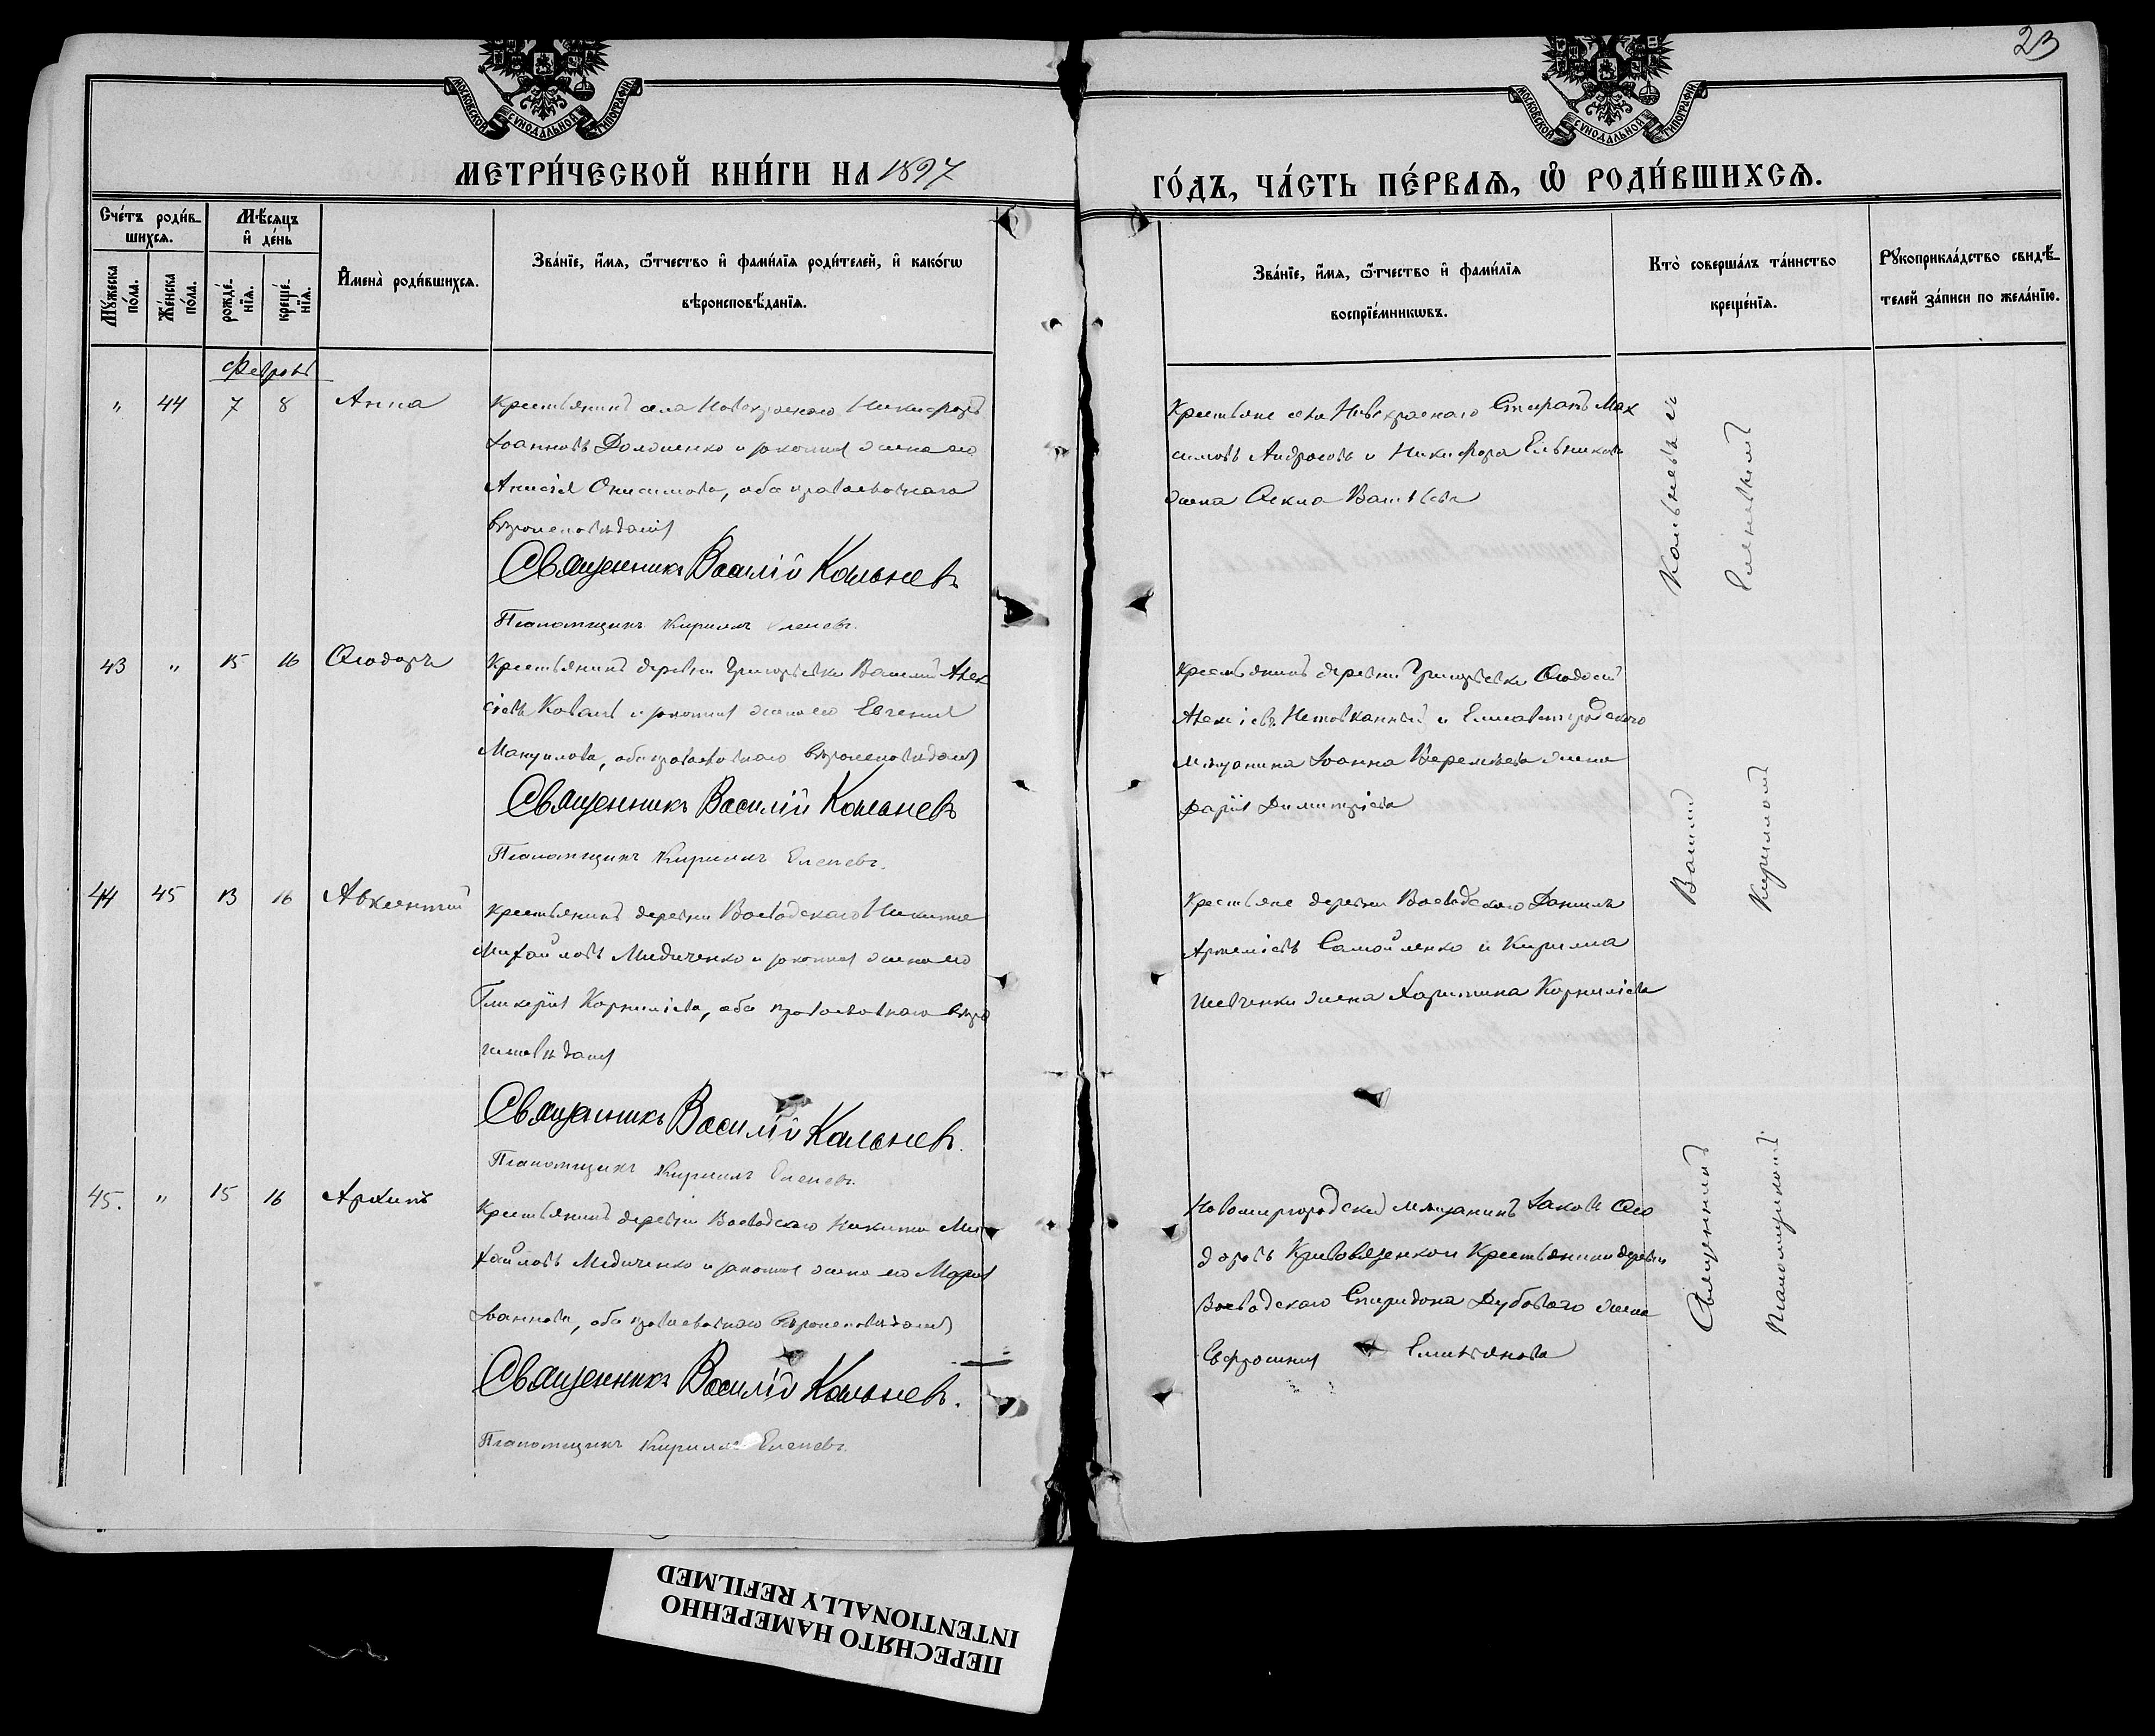 23
МОСКОВСКОЙ СѴНОДАЛЬНОЙ ТИПОГРАФІИ
МОСКОВСКОЙ СѴНОДАЛЬНОЙ ТИПОГРАФІИ
МЕТРИ́ЧЕСКОЙ КНИ́ГИ НА 1897
ГО́ДЪ, ЧА́СТЬ ПЕ́РВАѦ, Ѡ РОДИ́ВШИХСѦ.
Сче́тъ роди́в-
шихсѧ.
Мѣ́сяцъ
и҆ де́нь
Мꙋ́жеска по́ла.
Же́нска по́ла.
рожде́-нїѧ.
креще́-нїѧ.
И҆мена̀ роди́вшихсѧ.
Зва́нїе, и҆́мѧ, ѻ҆́тчество и҆ фами́лїѧ роди́телей, и҆ како́гѡ
вѣроисповѣ́данїѧ.
Зва́нїе, и҆́мѧ, ѻ҆́тчество и҆ фами́лїѧ
воспрїе́мникѡвъ.
Кто̀ соверша́лъ та́инство
креще́нїѧ.
Рꙋкоприкла́дство свидѣ́-
телей за́писи по жела́нїю.
" 44 7 8 Анна
Крестьянинъ села Новокраснаго Никифоръ
Іоанновъ и законная жена его
Анисія Онисимова, оба православнаго
вѣроисповѣданія
Священникъ Василій Кольневъ
Псаломщикъ Кирилъ Еленевъ.
Крестьяне села Новокраснаго Мак
симовъ и Никифора
жена
43 " 15 16 Ѳеодоръ
Крестьянинъ деревни Григорьевки Василій Алек
сіевъ Коваль и законная жена его Евгенія
Мануилова, оба православнаго вѣроисповѣданія
Священникъ Василій Кольневъ
Псаломщикъ Кирилъ Еленевъ.
Крестьянинъ деревни Григорьевки Ѳеодосій
Алексіевъ и Елисаветградскаго
мѣщанина Іоанна жена
Дарія Димитріева
44 45 13 16 Авксентій
Крестьянинъ деревни Воеводскаго Никита
Михайловъ Мидиченко и законная жена его
Гликерія Корниліева, оба православнаго вѣро
исповѣданія
Священникъ Василій Кольневъ.
Псаломщикъ Кирилъ Еленевъ.
Крестьяне деревни Воеводскаго Даніилъ
Артеміевъ Самойленко и Кирилла
Шевченки жена Харитина Корниліева
45. " 15 16 Архипъ
Крестьянинъ деревни Воеводскаго Никита Ми
хайловъ Мидиченко и законная жена его Марія
Іоаннова, оба православнаго вѣроисповѣданія
Священникъ Василій Кольневъ.
Псаломщикъ Кирилъ Еленевъ.
Новомиргородскій мѣщанинъ Іаковъ Ѳео
доровъ и Крестьянина деревни
Воеводскаго Спиридона Дубоваго жена
Евфросинія Емиліанова
Священникъ Василій Кольневъ съ
Псаломщикомъ Кирилломъ Еленевымъ
ПЕРЕСНЯТО НАМЕРЕННО
INTENTIONALLY REFILMED